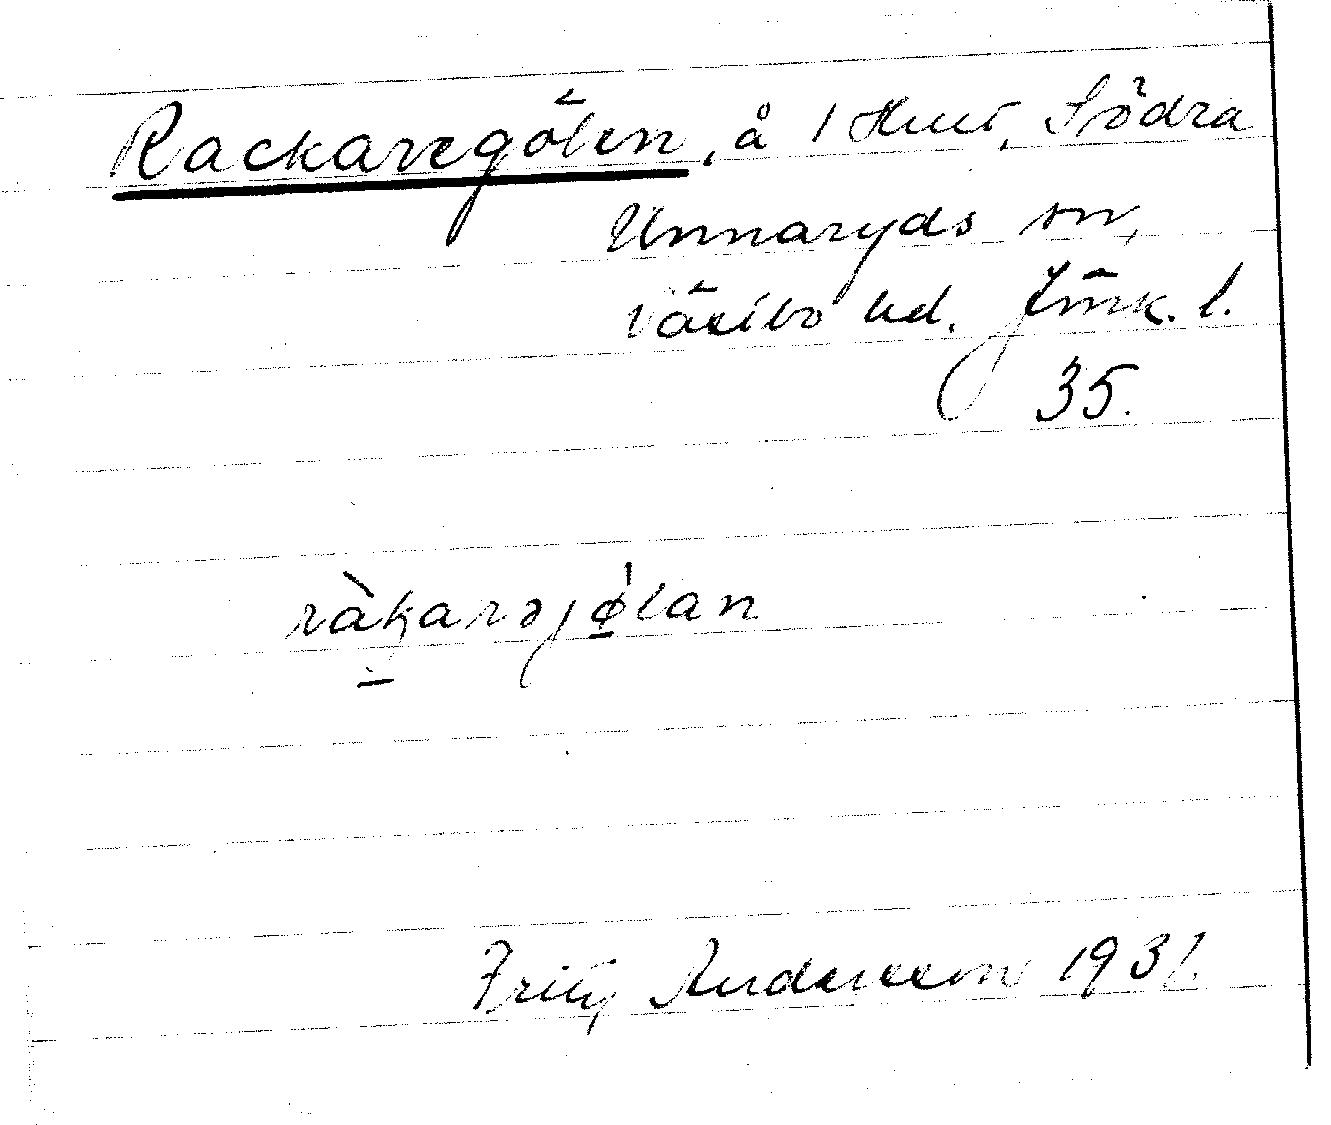 Rackaregölen, å 1 Hult, Södra
Unnaryds sn,
Västbo hd. Jönk. l.
35.
ràkarəjø̀lan
Fritz Andersson 1931.